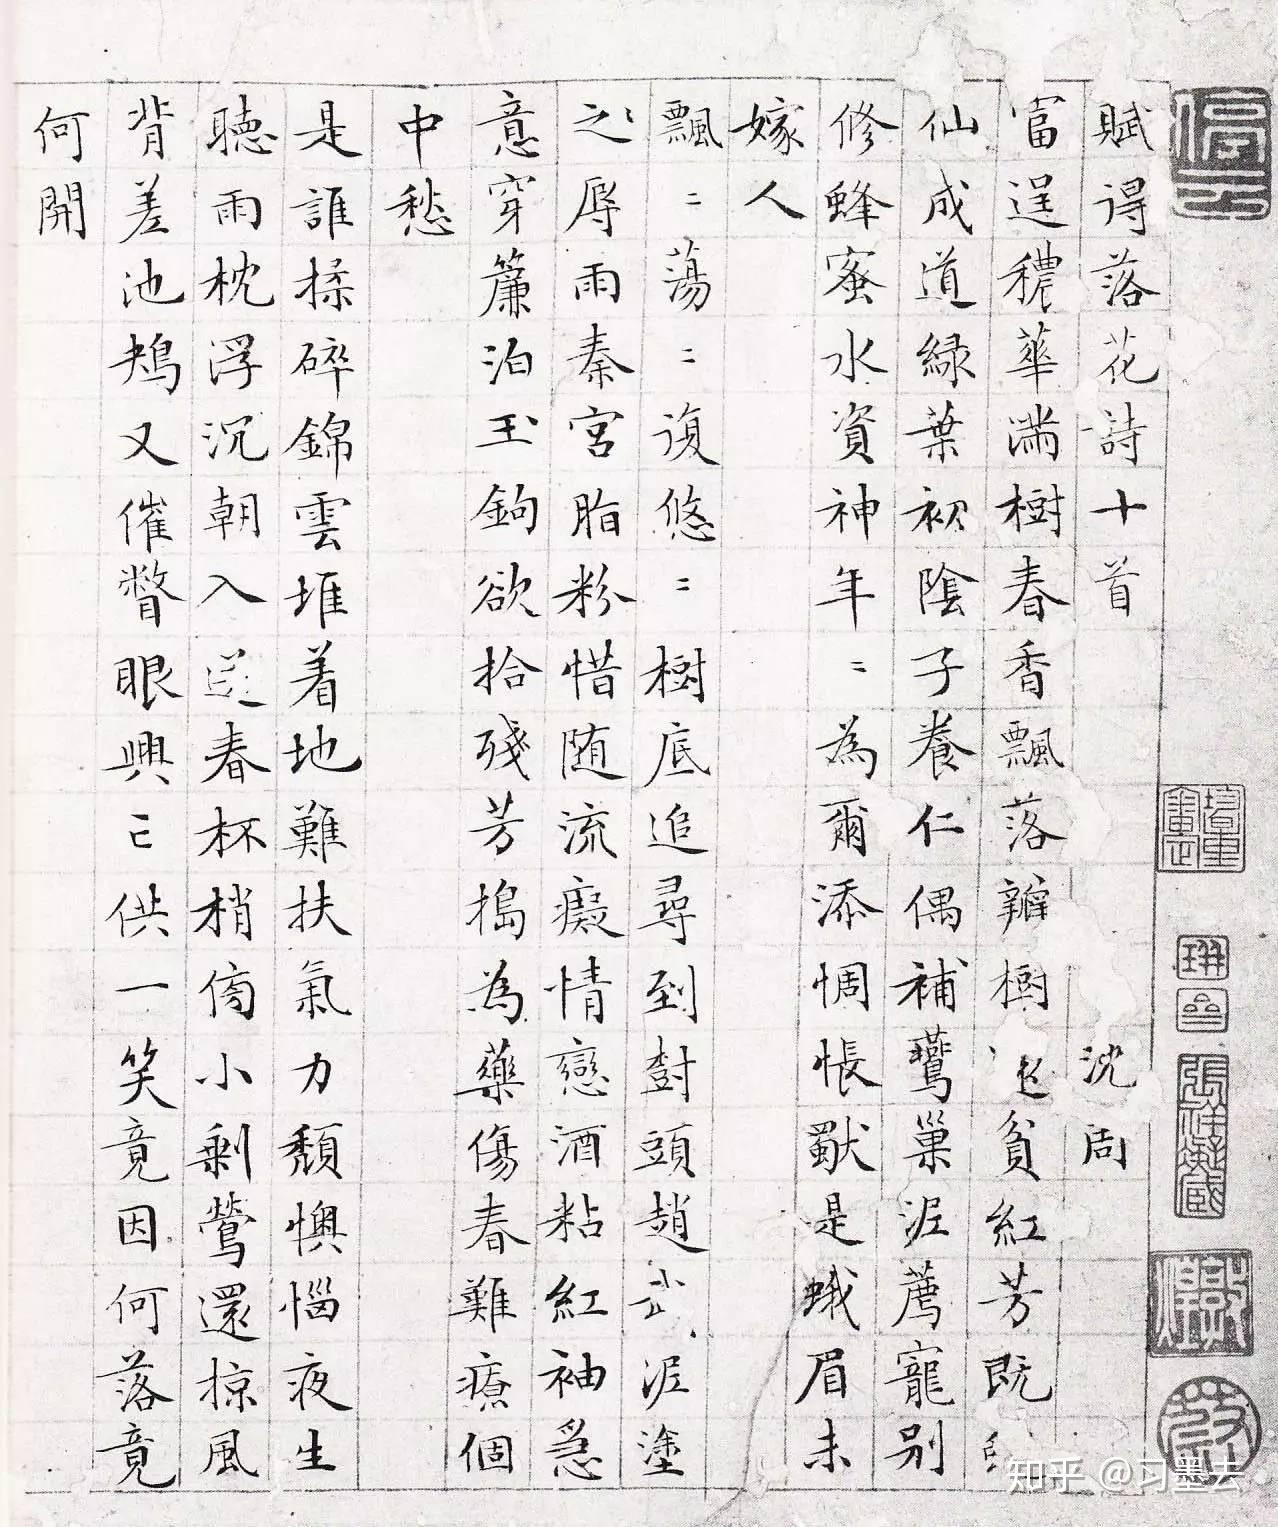 賦得落花詩十首 沈周
富逞穠華滿樹春香飄落瓣樹還貧紅芳既
仙成道綠葉初陰子養仁偶補鷰巢泥薦寵別
修蜂蜜水資神年〻為爾添惆悵是蛾眉未
嫁人
飄〻蕩〻復悠〻樹底追尋到樹頭趙武泥塗
之辱雨秦宮脂粉惜随流癡情戀酒粘紅袖急
意穿簾泊玉鉤欲拾殘芳搗為藥傷春難療個
中愁
是誰揉碎錦雲堆着地難扶氣力頹懊惱夜生
聽雨枕浮沉朝入送春杯梢傍小剩鶯還掠風
背差池鴂又催瞥眼興亡供一笑竟因何落竟
何開
張祥凝藏
知乎 @习墨去